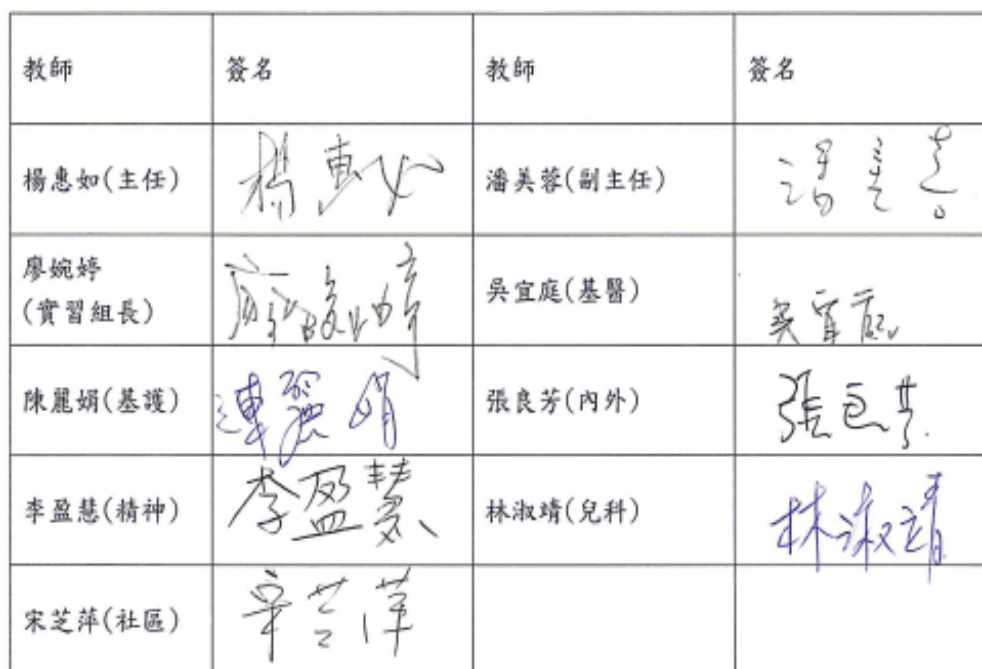 教師 簽名 教師 簽名
楊惠如(主任) 楊惠如 潘美蓉(副主任)
廖婉婷
(實習組長) 吳宜庭(基醫) 吳宜庭
陳麗娟(基護) 陳麗娟 張良芳(內外) 張良芳
李盈慧(精神) 李盈慧 林淑靖(兒科) 林淑靖
宋芝萍(社區)